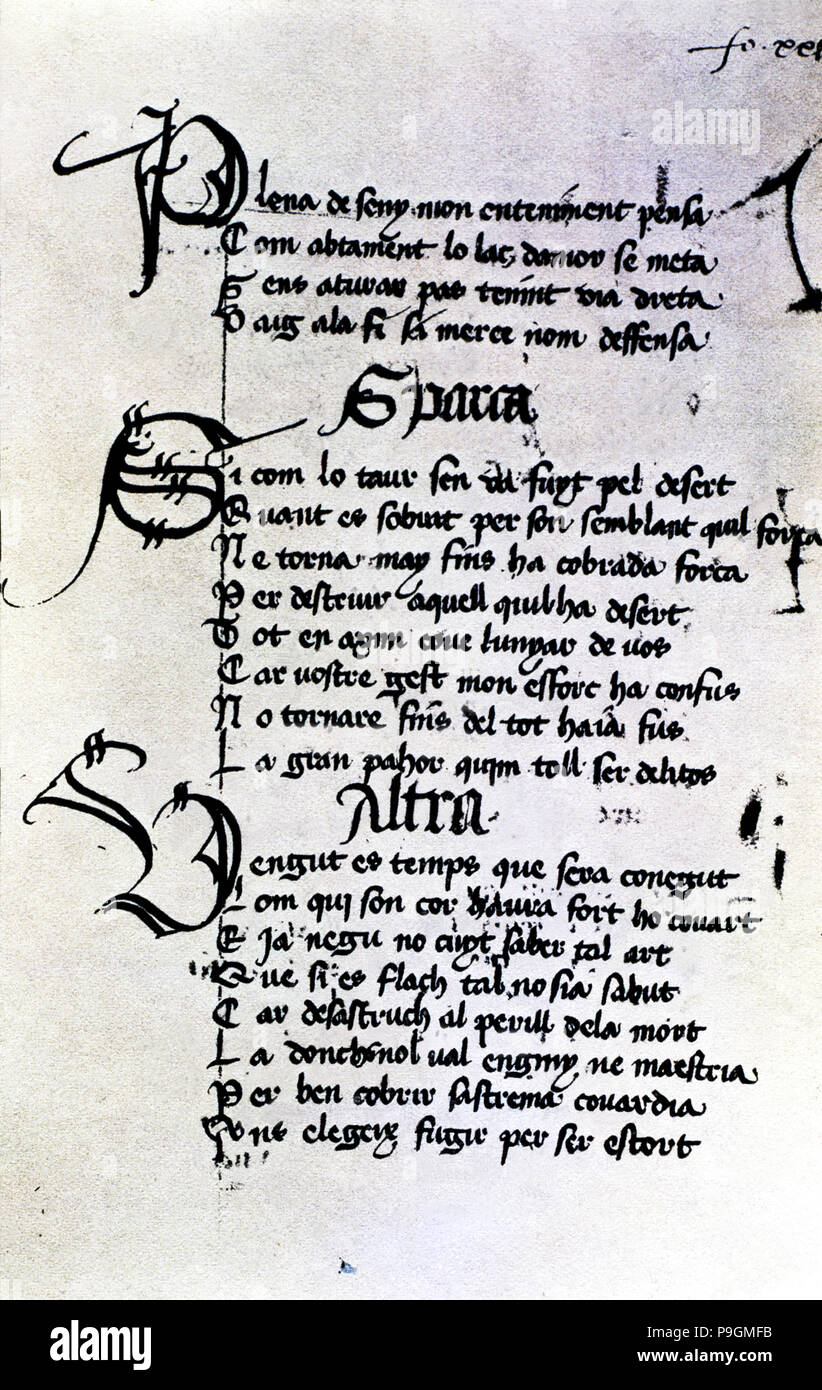 fo. xxi
Plena de seny mon enteniment pensa
Com abtament lo laç damor se meta
Sens aturar pas tenint via dreta
Vaig ala fi si merce nom deffensa
Sparça
Si com lo taur sen va fuyt pel desert
Quant es sobrat per son semblant quil força
Ne torna may fins ha cobrada força
Per destruir aquell quilha desert
Tot en axim cove lunyar de vos
Car vostre gest mon esforç ha confus
No tornare fins del tot haia fus
La gran pahor quim toll ser delitos
Altra
Vengut es temps que sera conegut
Lom qui son cor haura fort ho covart
E ja negu no cuyt saber tal art
Que si es flach tal no sia sabut
Car desastruch al perill dela mort
La donchs nol val enginy ne maestria
Per ben cobrir sastrema covardia
ns elegeix fugir per ser estort
alamy
alamy
a
a
a
alamy
Image ID: P9GMFB
www.alamy.com